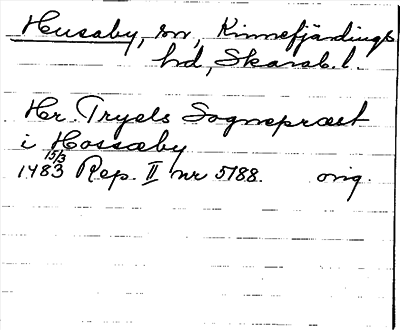 Husaby, sn, Kinnefjärdings
hd, Skarab. l.
Hr. Tryels Sognepræst
i Hossæby
15/3
1483 Rep. II nr 5188. orig.